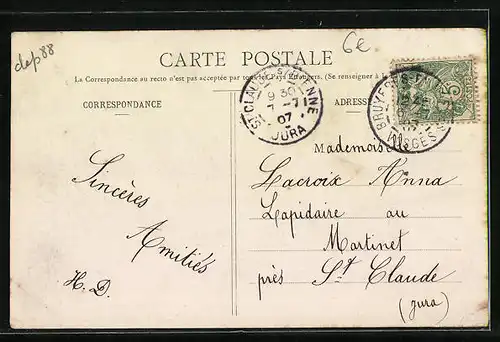 dep88
6€
CARTE POSTALE
La Correspondance au recto n'est pas acceptée par tous les Pays Étrangers. (Se renseigner à
CORRESPONDANCE
ADRESSE
ST CLAUDE
9 30
-7
07
JURA
BRUYERES
07
VOSGES
5
Sincères
Amitiés
H. D.
Mademoiselle
Lacroix Anna
Lapidaire au
Martinet
près St Claude
(Jura)